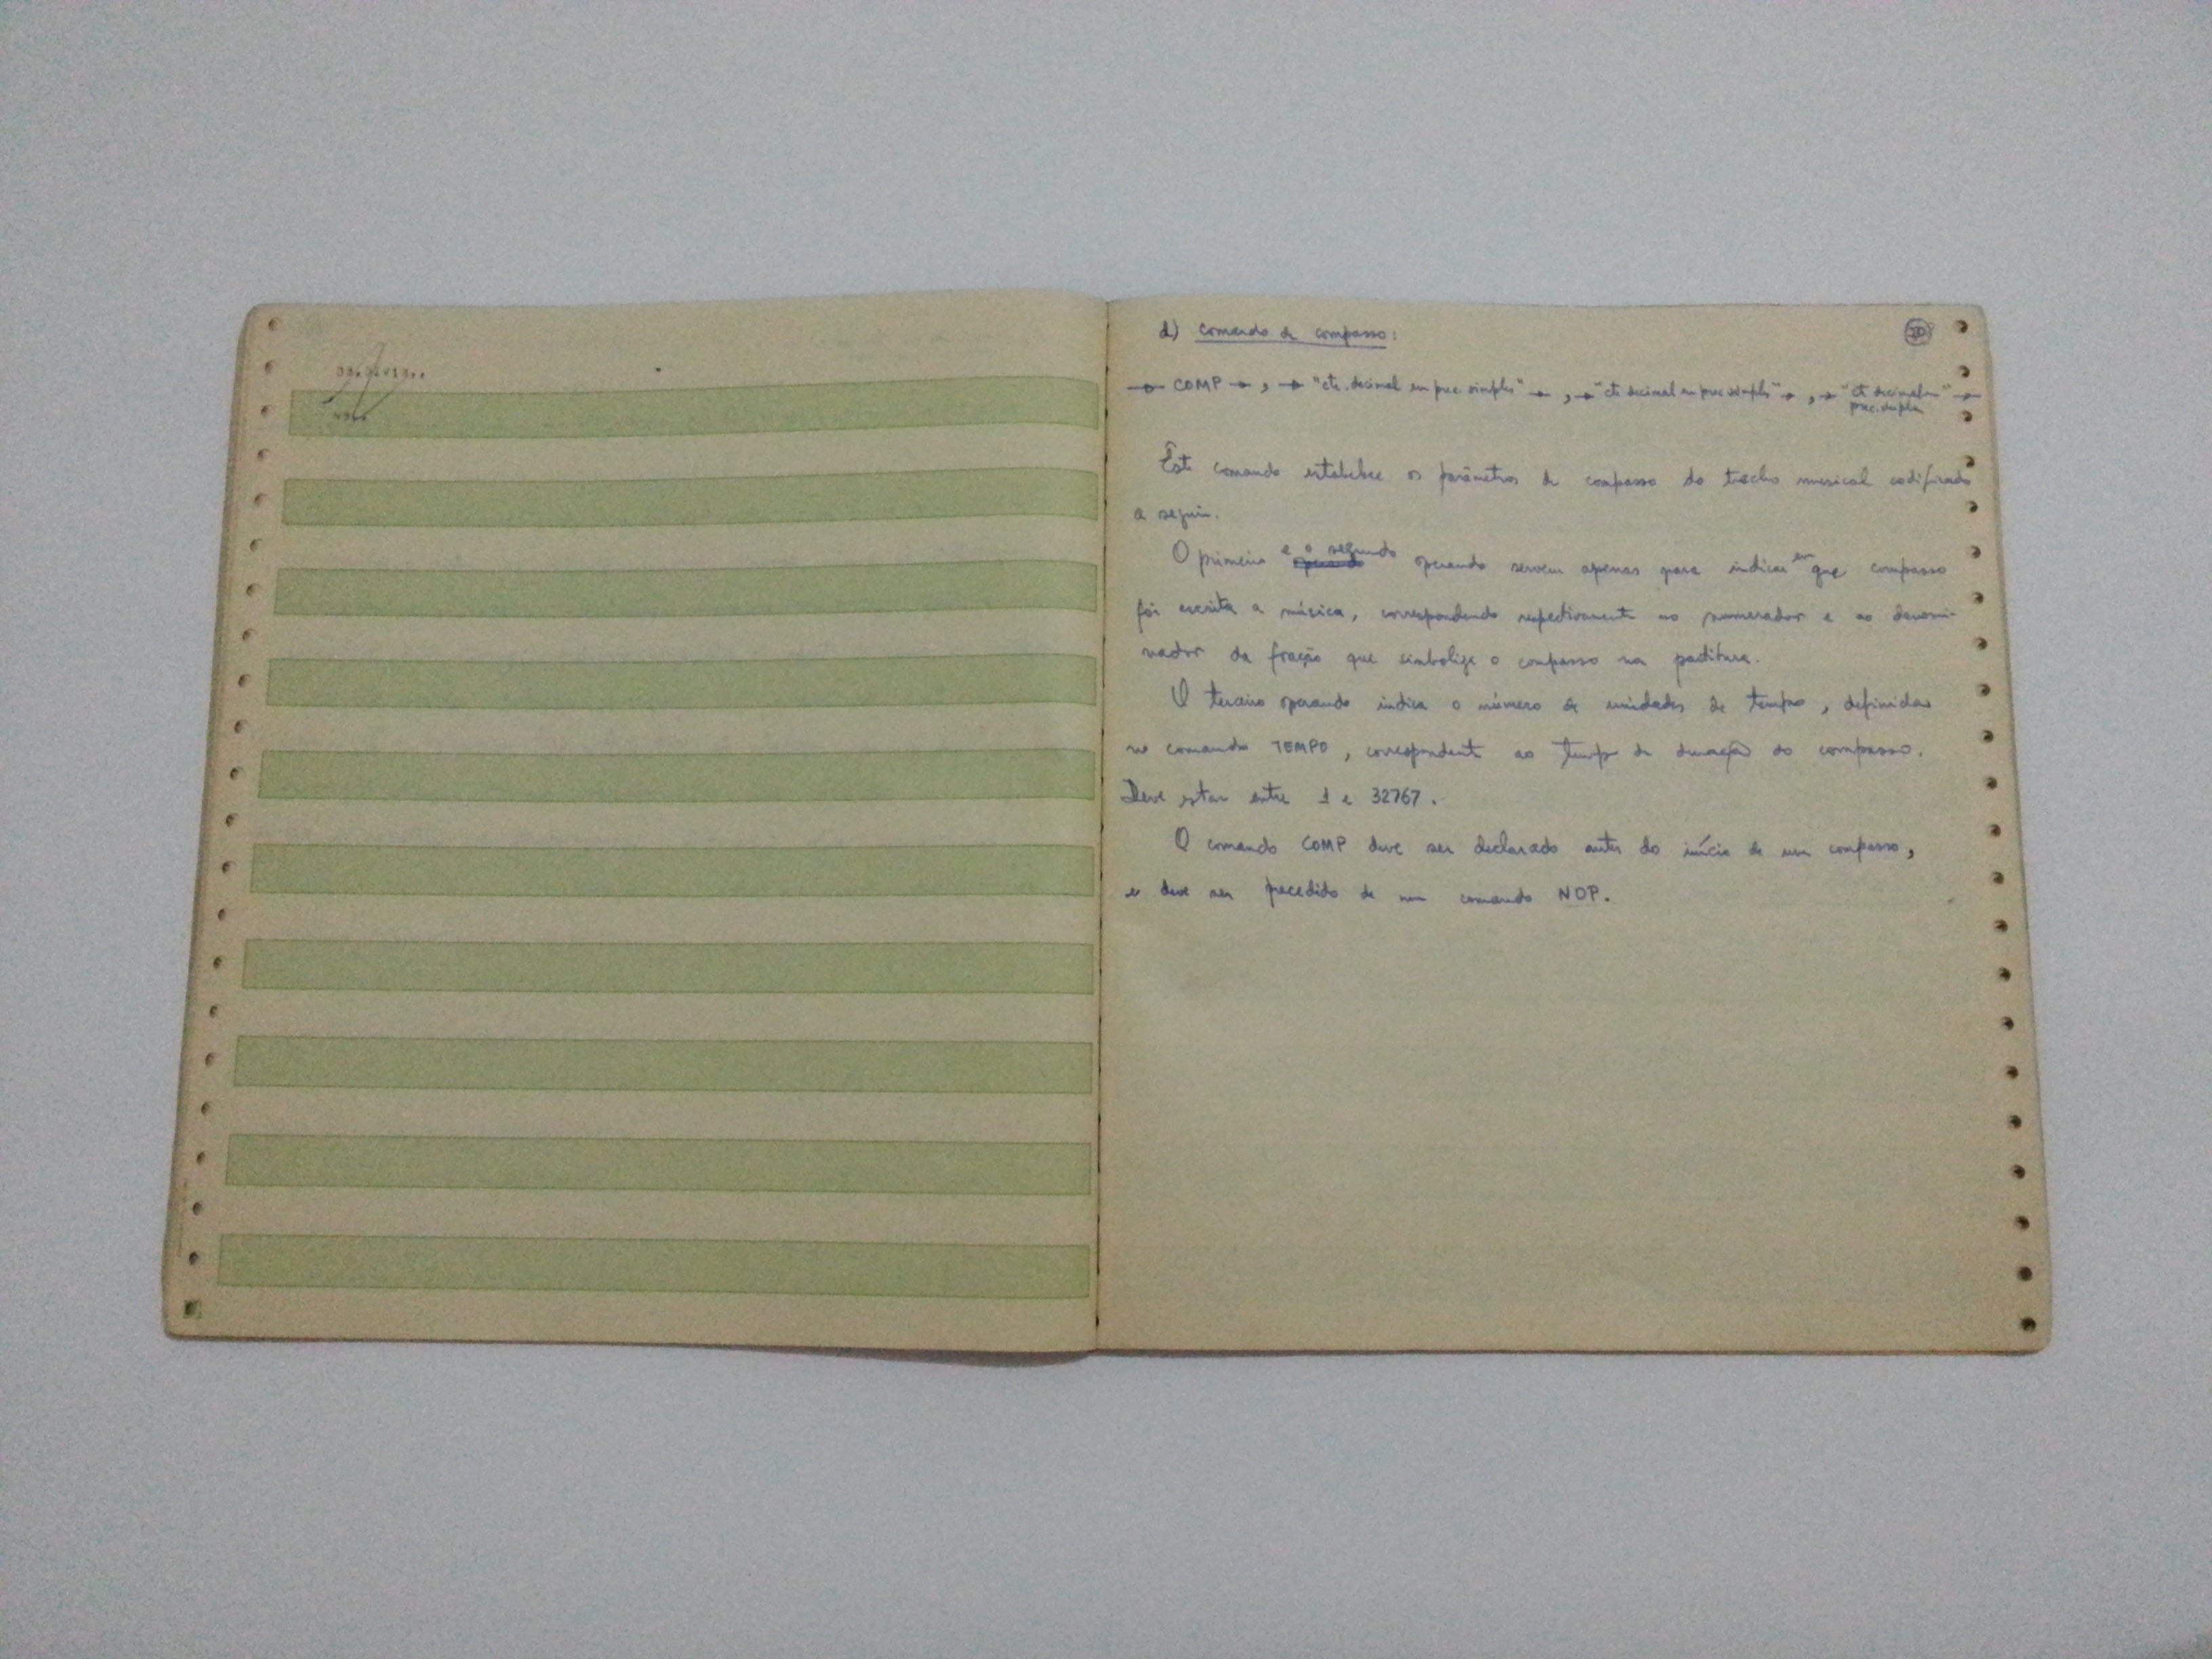 d) comando de compasso:
→ COMP → , → "cte. decimal em prec. simples" → , → "cte decimal em prec simples" → , → "cte decimal em →
prec. dupla"
Este comando estabelece os parâmetros de compasso do trecho musical codificado
a seguir.
O primeiro e o segundo operando servem apenas para indicar em que compasso
foi escrita a música, correspondendo respectivamente ao numerador e ao denomi-
nador da fração que simboliza o compasso na partitura.
O terceiro operando indica o número de unidades de tempo, definidas
no comando TEMPO, correspondente ao tempo de duração do compasso.
Deve estar entre 1 e 32767.
O comando COMP deve ser declarado antes do início de um compasso,
e deve ser precedido de um comando NOP.